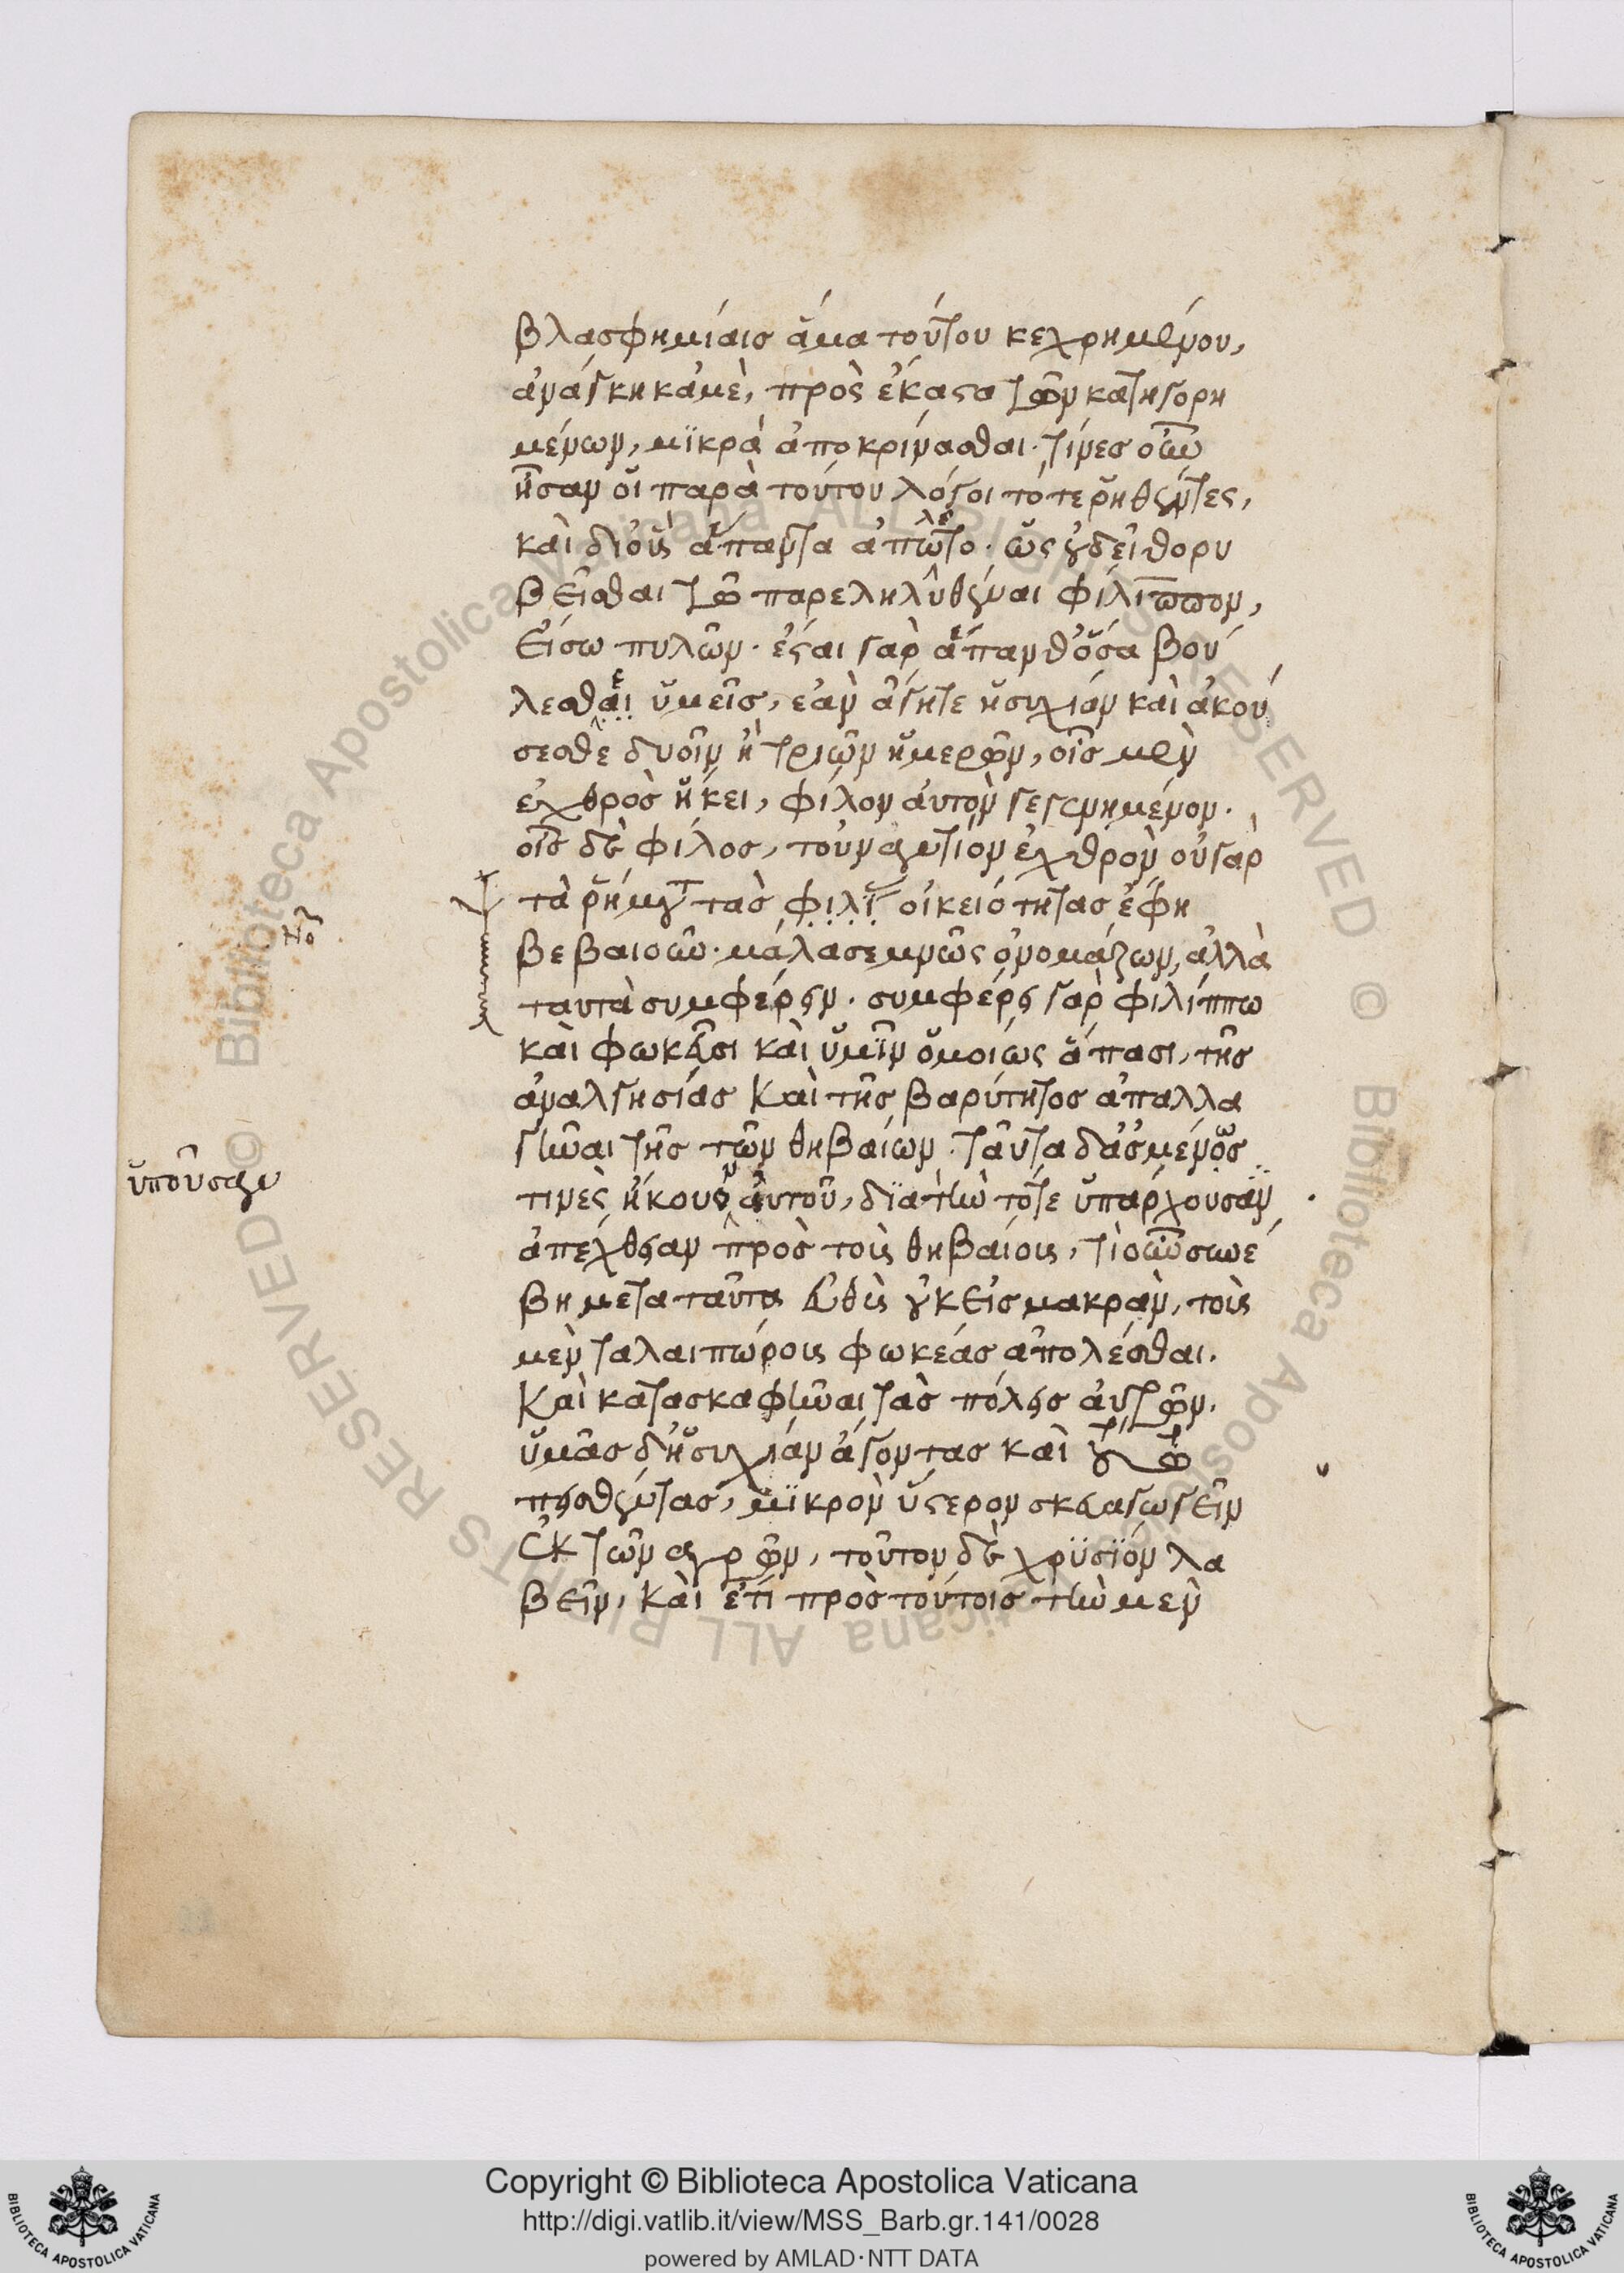 βλασφημίαις ἅμα τούτου κεχρημένου,
ἀνάγκη κἀμὲ, πρὸς ἕκαστα τῶν κατηγορη
μένων, μϊκρὰ ἀποκρίνασθαι. τίνες οὖν
ἦσαν οἱ παρὰ τούτου λόγοι τότε ῥηθέντες,
καὶ δι' οὓς ἅπαντα ἀπώλετο. ὡς οὐ δεῖ θορυ
βεῖσθαι τῷ παρεληλυθέναι φίλιππον,
εἴσω πυλῶν. ἔσται γὰρ ἅπανθ' ὅσα βού
λεσθε ὑμεῖς, ἐὰν ἄγητε ἡσυχίαν καὶ ἀκού
σεσθε δυοῖν ἢ τριῶν ἡμερῶν, οἷς μὲν
ἐχθρὸς ἥκει, φίλον αὐτὸν γεγενημένον.
οἷς δὲ φίλος, τοὐναντίον ἐχθρὸν οὐ γὰρ
τὰ ῥήματα τὰς φιλι οἰκειότητας ἔφη
βεβαιοῦν. μάλα σεμνῶς ὀνομάζων, ἀλλὰ
ταυτὰ συμφέρειν. συμφέρει γὰρ φιλίππω
καὶ φωκεῦσι καὶ ὑμῖν ὁμοίως ἅπασι, τῆς
ἀναλγησίας καὶ τῆς βαρύτητος ἀπαλλα
γῆναι τῆς τῶν θηβαίων. ταῦτα δ' ἀσμένως
τινὲς ἤκουον αὐτοῦ, δϊὰ τὴν τότε ὑπάρχουσαν
ὑποῦσαν
ἀπέχθειαν πρὸς τοὺς θηβαίους, τί οὖν συνέ
βη μετὰ ταῦτα εὐθὺς οὐκ εἰς μακρὰν, τοὺς
μὲν ταλαιπώρους φωκέας ἀπολέσθαι.
καὶ κατασκαφῆναι τὰς πόλεις αὐτῶν.
ὑμᾶς δ' ἡσυχίαν ἄγοντας καὶ τούτῳ
πεισθέντας, μϊκρὸν ὕστερον σκευαγωγεῖν
ἐκ τῶν ἀγρῶν, τοῦτον δὲ χρϋσϊόν λα
βεῖν, καὶ ἔτι πρὸς τούτοις τὴν μὲν
Copyright © Biblioteca Apostolica Vaticana
http://digi.vatlib.it/view/MSS_Barb.gr.141/0028
powered by AMLAD·NTT DATA